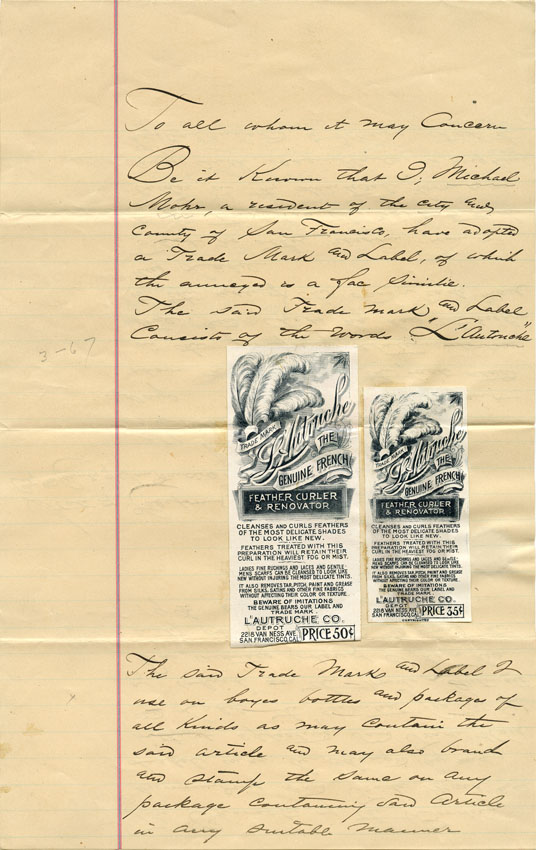 To all whom it may Concern
Be it Known that I, Michael
Mohr, a resident of the city and
County of San Francisco, have adopted
a Trade Mark and Label, of which
the annexed is a fac Simile.
The said Trade mark and Label
Consists of the words "L'Autruche"
3-67
TRADE MARK
L'Autruche
THE
GENUINE FRENCH
FEATHER CURLER
& RENOVATOR
CLEANSES AND CURLS FEATHERS
OF THE MOST DELICATE SHADES
TO LOOK LIKE NEW.
FEATHERS TREATED WITH THIS
PREPARATION WILL RETAIN THEIR
CURL IN THE HEAVIEST FOG OR MIST.
LADIES FINE RUCHINGS AND LACES AND GENTLE-
MENS SCARFS CAN BE CLEANSED TO LOOK LIKE
NEW WITHOUT INJURING THE MOST DELICATE TINTS.
IT ALSO REMOVES TAR, PITCH, PAINT AND GREASE
FROM SILKS, SATINS AND OTHER FINE FABRICS
WITHOUT AFFECTING THEIR COLOR OR TEXTURE.
BEWARE OF IMITATIONS
THE GENUINE BEARS OUR LABEL AND
TRADE MARK.
L'AUTRUCHE CO.
DEPOT
2218 VAN NESS AVE.
SAN FRANCISCO, CAL.
PRICE 50¢
TRADE MARK
L'Autruche
THE
GENUINE FRENCH
FEATHER CURLER
& RENOVATOR
CLEANSES AND CURLS FEATHERS
OF THE MOST DELICATE SHADES
TO LOOK LIKE NEW.
FEATHERS TREATED WITH THIS
PREPARATION WILL RETAIN THEIR
CURL IN THE HEAVIEST FOG OR MIST.
LADIES FINE RUCHINGS AND LACES AND GENTLE-
MENS SCARFS CAN BE CLEANSED TO LOOK LIKE
NEW WITHOUT INJURING THE MOST DELICATE TINTS.
IT ALSO REMOVES TAR, PITCH, PAINT AND GREASE
FROM SILKS, SATINS AND OTHER FINE FABRICS
WITHOUT AFFECTING THEIR COLOR OR TEXTURE.
BEWARE OF IMITATIONS
THE GENUINE BEARS OUR LABEL AND
TRADE MARK.
L'AUTRUCHE CO.
DEPOT
2218 VAN NESS AVE.
SAN FRANCISCO, CAL.
PRICE 35¢
The said Trade Mark and Label I
use on boxes bottles and packages of
all Kinds as may Contain the
said article and may also brand
and stamp the same on any
package Containing said Article
in any suitable manner